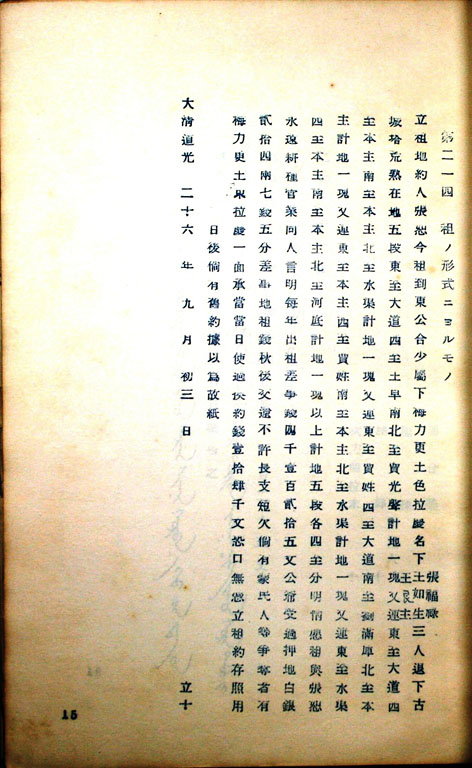 第二一四 租ノ形式ニヨルモノ
張福祿
立租地約人張恕今租到東公合少屬下梅力更土色拉慶名下土如生三人退下古
王良主
城塔荒熟在地五段東至大道四至土阜南北至賈光聲計地一塊又連東至大道四
至本主南至本主北至水渠計地一塊又連東至賈姓四至大道南至劉滿庫北至本
主計地一塊又連東至本主西至買姓南至本主北至水渠計地一塊又連東至水渠
四至本主南至本主北至河底計地一塊以上計地五段各四至分明情愿租與張恕
永遠耕種官業同人言明每年出租差爭錢四千壹百貳拾五文公爺受過押地白銀
貳拾四兩七錢五分差事地租錢秋後交還不許長支短欠倘有蒙民人等爭奪者有
梅力更土東拉慶一面承當當日使過佚約錢壹拾肆千文恐口無憑立租約存照用
日後倘有舊約據以為故紙
大清道光 二十六 年 九 月 初三 日 立十
15